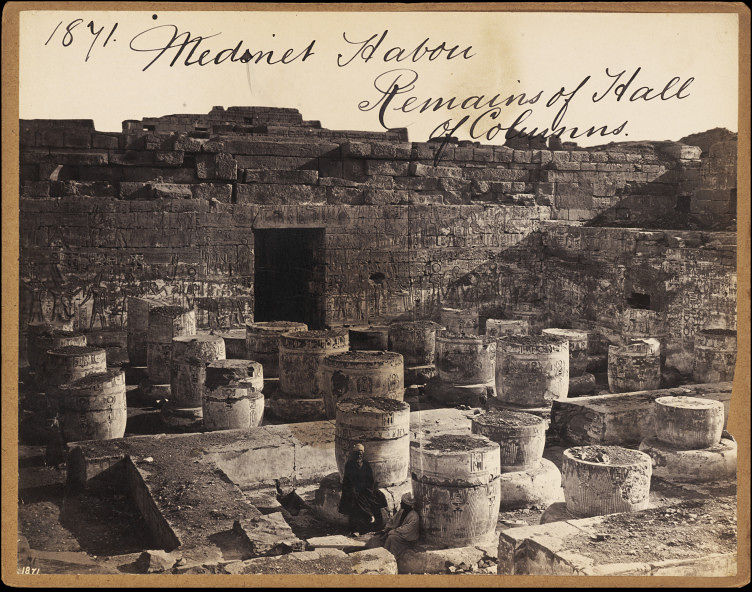 1871. Medinet Habou
Remains of Hall
of Columns.
1871